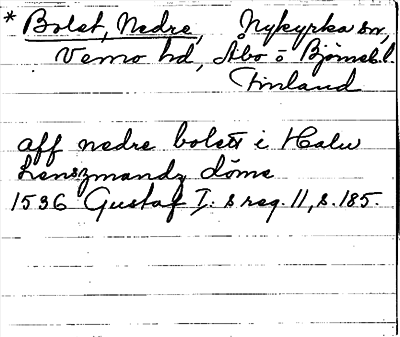 * Bolst, Nedre, Nykyrka sn,
Vemo hd, Åbo o Björneb. l.
Finland
aff nedre bolstt i Halu
Lenszmandz döme
1536 Gustaf I: s reg. 11, s. 185.